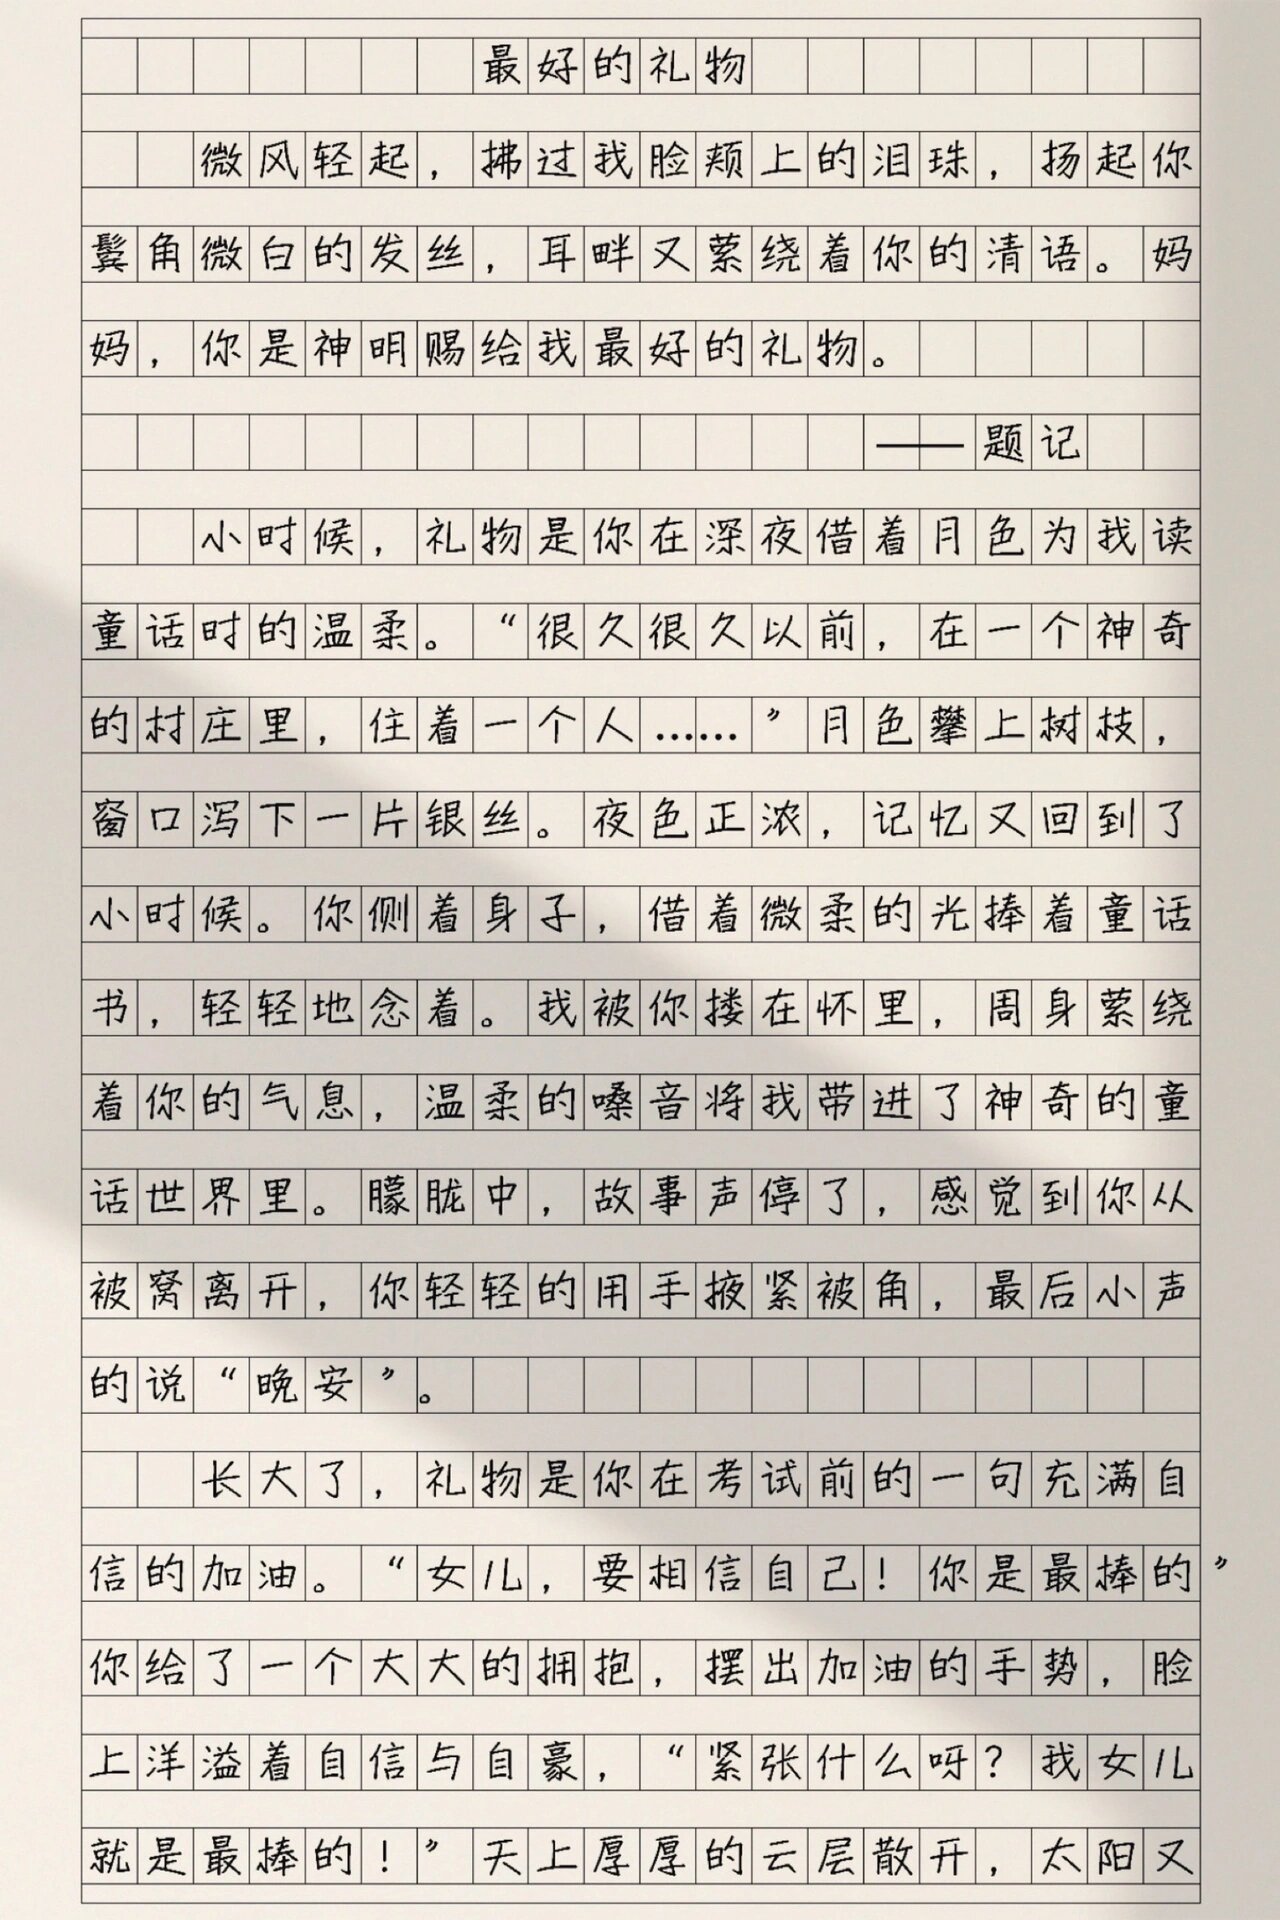 最好的礼物
微风轻起，拂过我脸颊上的泪珠，扬起你
鬓角微白的发丝，耳畔又萦绕着你的清语。妈
妈，你是神明赐给我最好的礼物。
——题记
小时候，礼物是你在深夜借着月色为我读
童话时的温柔。“很久很久以前，在一个神奇
的村庄里，住着一个人……”月色攀上树枝，
窗口泻下一片银丝。夜色正浓，记忆又回到了
小时候。你侧着身子，借着微柔的光捧着童话
书，轻轻地念着。我被你搂在怀里，周身萦绕
着你的气息，温柔的嗓音将我带进了神奇的童
话世界里。朦胧中，故事声停了，感觉到你从
被窝离开，你轻轻的用手掖紧被角，最后小声
的说“晚安”。
长大了，礼物是你在考试前的一句充满自
信的加油。“女儿，要相信自己！你是最棒的”
你给了一个大大的拥抱，摆出加油的手势，脸
上洋溢着自信与自豪，“紧张什么呀？我女儿
就是最棒的！”天上厚厚的云层散开，太阳又